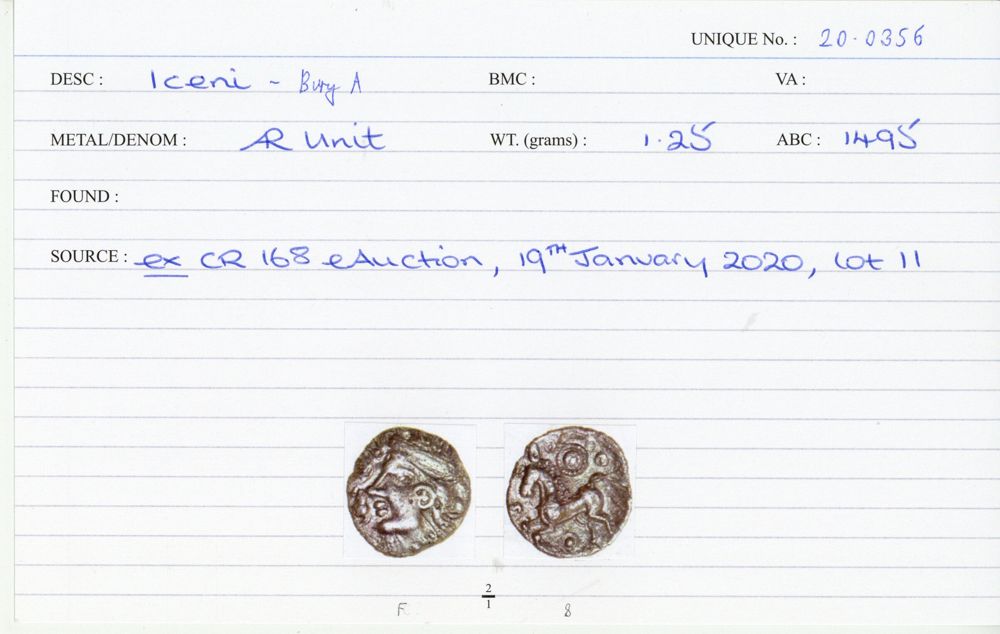 UNIQUE No. : 20·0356
DESC : Iceni - Bury A BMC : VA :
METAL/DENOM : AR Unit WT. (grams) : 1·25 ABC : 1495
FOUND :
SOURCE : ex CR 168 eAuction, 19TH January 2020, Lot 11
2
1
F 8